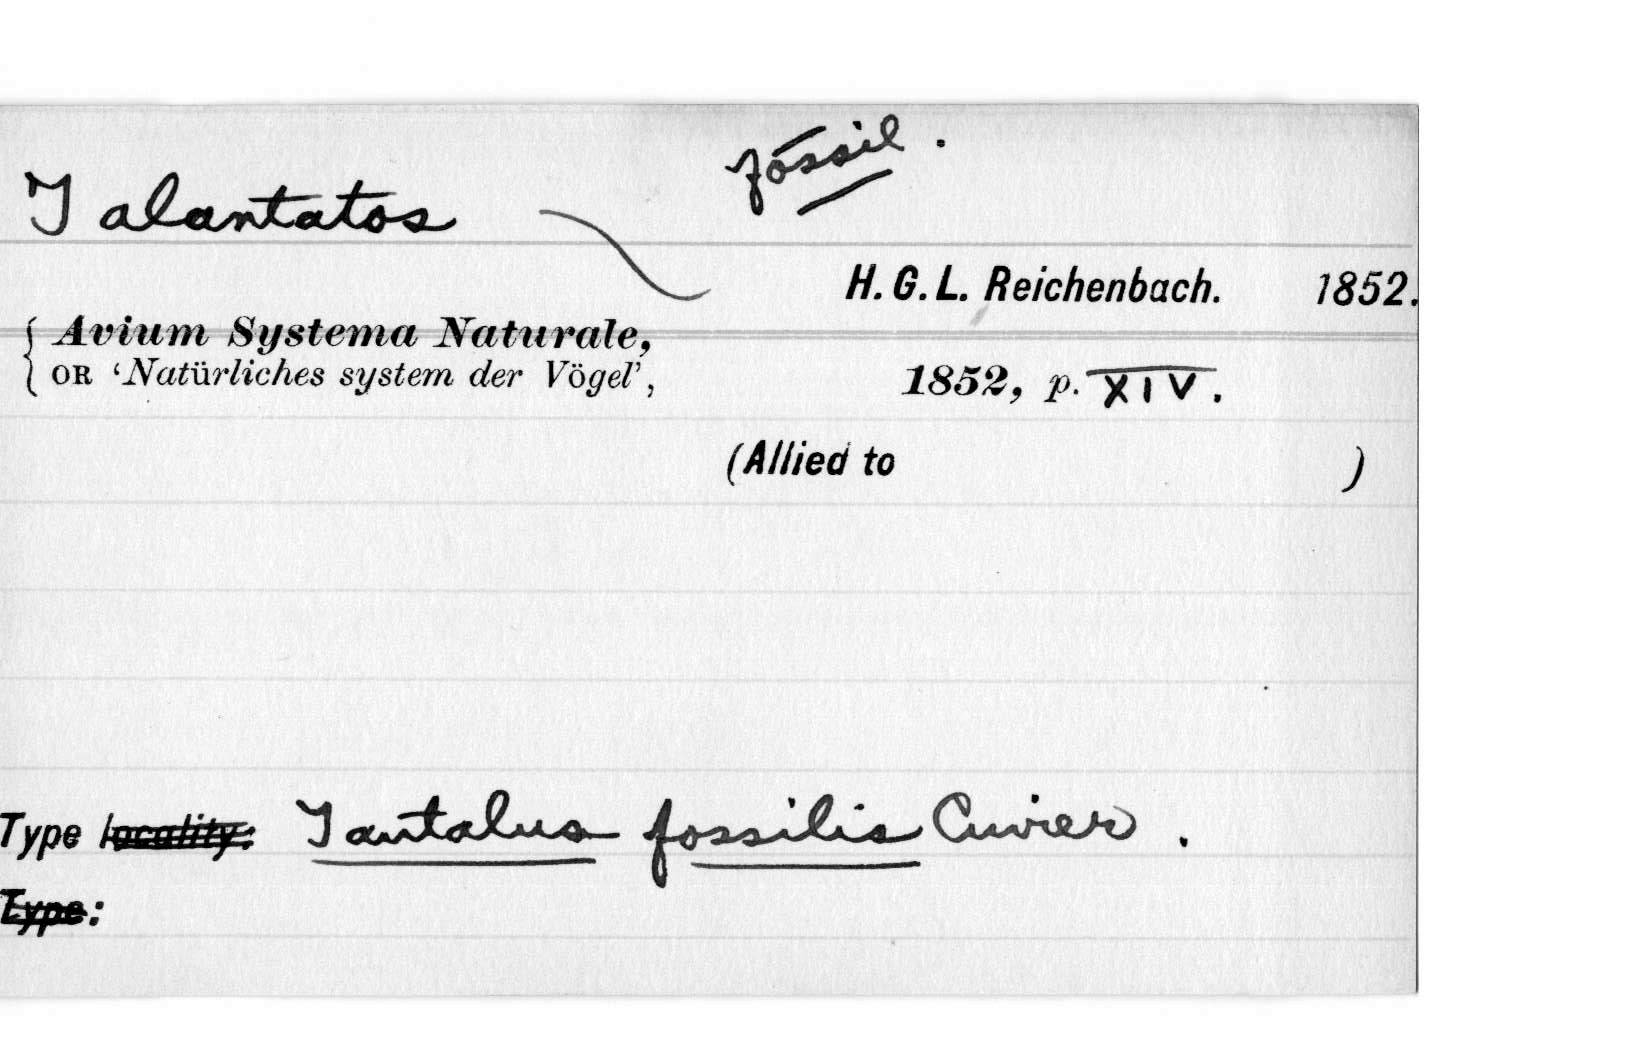 fossil.
Talantatos
H. G. L. Reichenbach. 1852.
Avium Systema Naturale,
OR ‘Natürliches system der Vögel’, 1852, p. XIV.
(Allied to )
Type locality: Tantalus fossilis Cuvier.
Type: